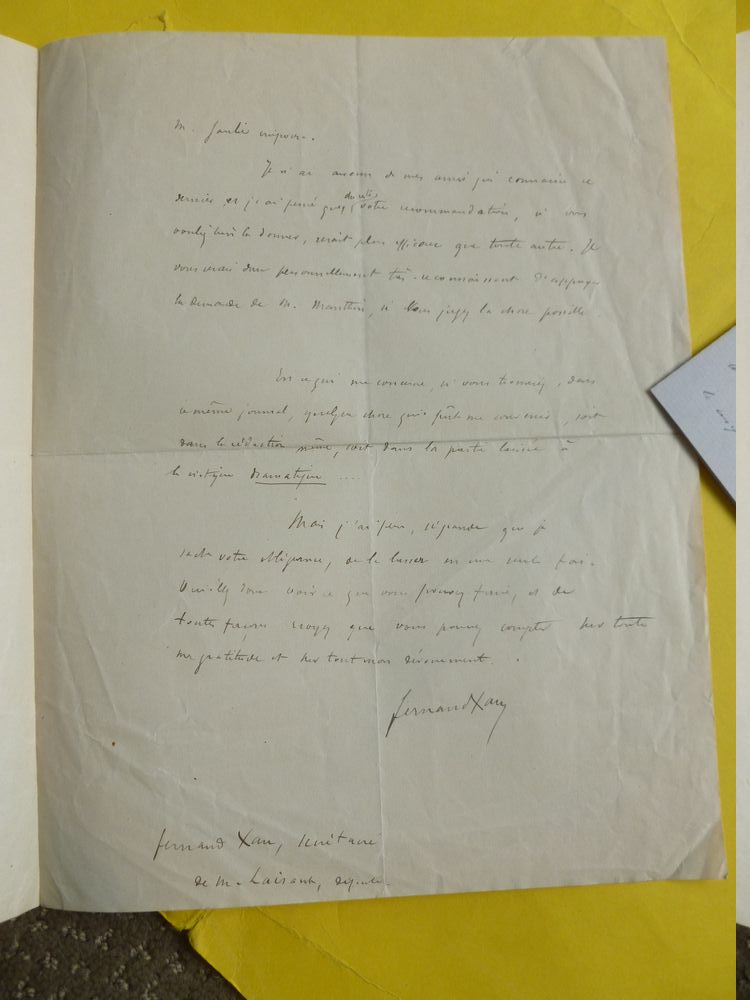 Je n'ai aucun de mes amis qui connaisse ce
dernier et j'ai pensé que, du reste, votre recommandation, si vous
vouliez bien la donner, serait plus efficace que toute autre. Je
vous serais donc personnellement très-reconnaissant d'appuyer
la demande de M. si vous jugez la chose possible.
En ce qui me concerne, si vous trouviez, dans
ce même journal, quelque chose qui pût me convenir, soit
dans la rédaction même, soit dans la partie laissée à
la critique dramatique ....
Mais j'ai peur, que je
votre obligeance, de la lasser en une seule fois.
Veuillez donc voir ce que vous pouvez faire, et de
toutes façons croyez que vous pouvez compter sur toute
ma gratitude et sur tout mon dévouement.
Fernand Xau
Fernand Xau, secrétaire
de M. Laisant, député.